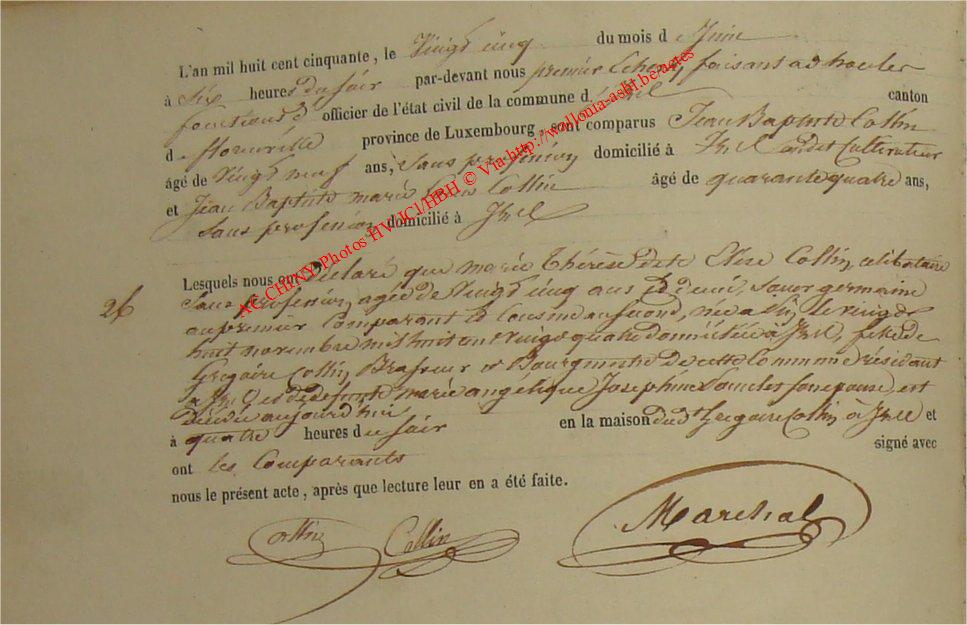 L'an mil huit cent cinquante, le Vingt cinq du mois d Juin
à Six heures du soir par-devant nous premier Echevin faisant ad hauter
fonctions d officier de l'état civil de la commune d' canton
d Florenville province de Luxembourg, sont comparus Jean Baptiste Collin
âgé de Vingt neuf ans, Sans profession domicilié à Izel Cultivateur
et Jean Baptiste marie Collin âgé de quarante quatre ans,
Sans profession domicilié à Izel
Lesquels nous ont Déclaré que marie Thérèse dite Elise Collin, celibataire
26
Sans profession, agée de Vingt cinq ans & demi, Soeur germaine
au premier Comparant & Cousine au second, née a le vingt
huit novembre mil huit cent vingt quatre domiciliée à Izel, fille de
Grégoire Collin, Brasseur & Bourgmestre de cette Commune résidant
à Izel, et de defunte marie angelique Josephine son epouse, est
décédée aujourd'hui
à quatre heures du soir en la maison dud t Grégoire Collin, à Izel et
ont les Comparants signé avec
nous le présent acte, après que lecture leur en a été faite.
Collin Collin Marchal
AC CHINY Photos HV-JC1/HBH © Via http://wallonia-asbl.be/actes